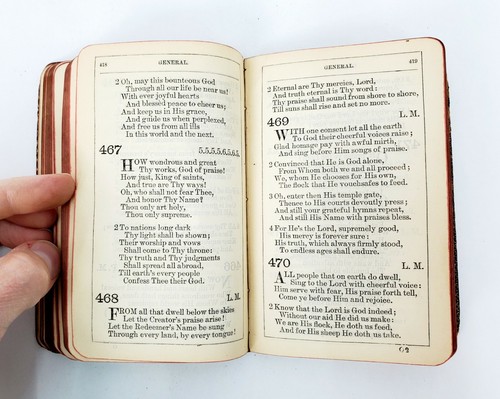 418
GENERAL.
2 Oh, may this bounteous God
Through all our life be near us!
With ever joyful hearts
And blessed peace to cheer us;
And keep us in His grace,
And guide us when perplexed,
And free us from all ills
In this world and the next.
467
5.5.5.5.6.5.6.5.
HOW wondrous and great
Thy works, God of praise!
How just, King of saints,
And true are Thy ways!
Oh, who shall not fear Thee,
And honor Thy Name?
Thou only art holy,
Thou only supreme.
2 To nations long dark
Thy light shall be shown;
Their worship and vows
Shall come to Thy throne:
Thy truth and Thy judgments
Shall spread all abroad,
Till earth's every people
Confess Thee their God.
468
L. M.
FROM all that dwell below the skies
Let the Creator's praise arise!
Let the Redeemer's Name be sung
Through every land, by every tongue!
GENERAL.
419
2 Eternal are Thy mercies, Lord,
And truth eternal is Thy word:
Thy praise shall sound from shore to shore,
Till suns shall rise and set no more.
469
L. M.
WITH one consent let all the earth
To God their cheerful voices raise;
Glad homage pay with awful mirth,
And sing before Him songs of praise.
2 Convinced that He is God alone,
From Whom both we and all proceed;
We, whom He chooses for His own,
The flock that He vouchsafes to feed.
3 Oh, enter then His temple gate,
Thence to His courts devoutly press;
And still your grateful hymns repeat,
And still His Name with praises bless.
4 For He's the Lord, supremely good,
His mercy is forever sure:
His truth, which always firmly stood,
To endless ages shall endure.
470
L. M.
ALL people that on earth do dwell,
Sing to the Lord with cheerful voice:
Him serve with fear, His praise forth tell,
Come ye before Him and rejoice.
2 Know that the Lord is God indeed;
Without our aid He did us make:
We are His flock, He doth us feed,
And for His sheep He doth us take.